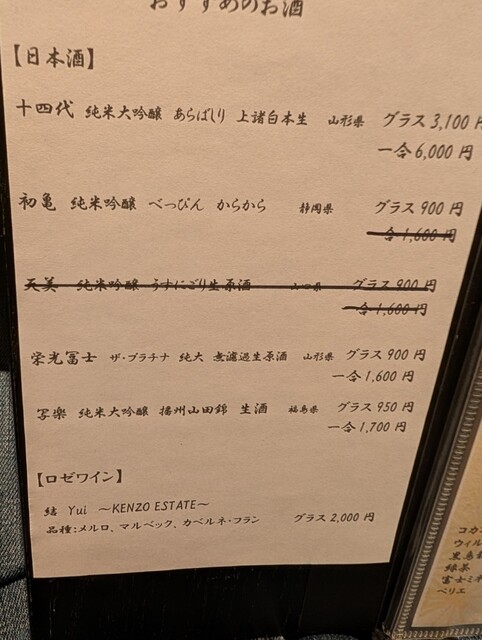 おすすめのお酒
【日本酒】
十四代 純米大吟醸 あらばしり 上諸白本生 山形県 グラス 3,100 円
一合 6,000 円
初亀 純米吟醸 べっぴん からから 静岡県 グラス 900 円
一合 1,600 円
天美 純米吟醸 うすにごり生原酒 山口県 グラス 900 円
一合 1,600 円
栄光冨士 ザ・プラチナ 純大 無濾過生原酒 山形県 グラス 900 円
一合 1,600 円
写楽 純米大吟醸 播州山田錦 生酒 福島県 グラス 950 円
一合 1,700 円
【ロゼワイン】
結 Yui ～KENZO ESTATE～
品種：メルロ、マルベック、カベルネ・フラン グラス 2,000 円
コカ
ウィル
黒烏
緑茶
富士ミネ
ペリエ